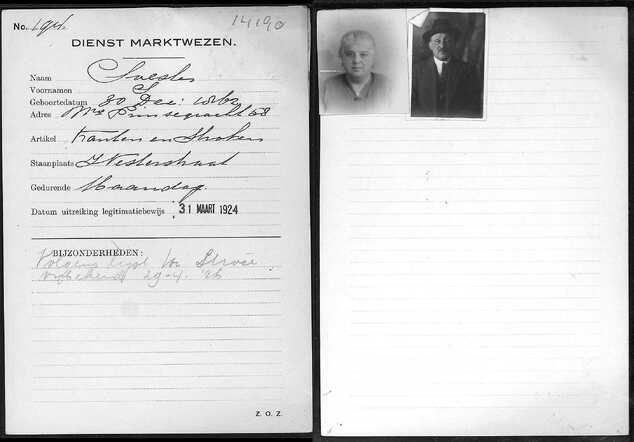 No. 14190
DIENST MARKTWEZEN.
Naam
Voornamen S
Geboortedatum 30 Dec:
Adres Prinsegracht 58
Artikel Kanten en Stroken
Staanplaats Westerstraat
Gedurende Maandag
Datum uitreiking legitimatiebewijs 31 MAART 1924
BIJZONDERHEDEN:
Volgens lijst
29-4. 26
Z. O. Z.